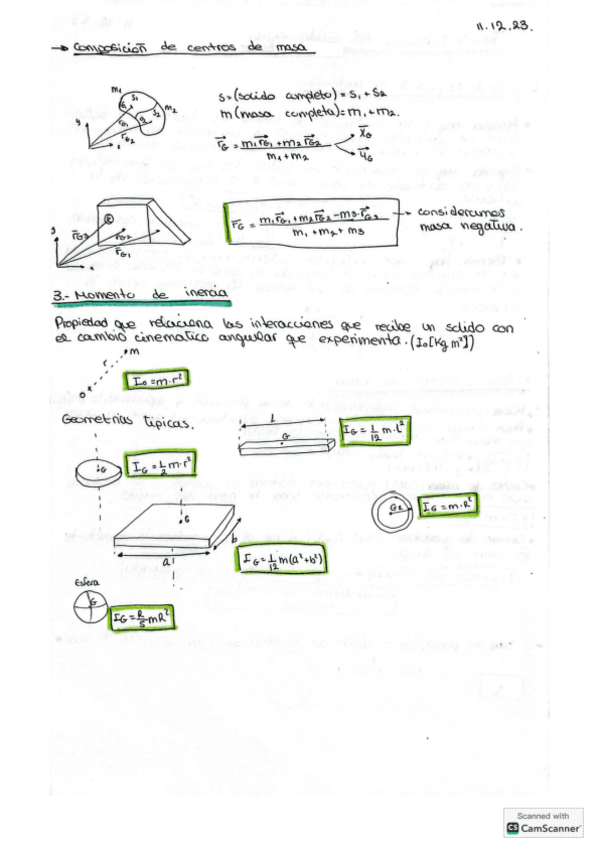 11.12.23.
→ Composicion de centros de masa
m1 S1 S2 m2
G1 G2
y x
r̄G1 r̄G2
S=(solido completo) = S1 + S2
m (masa completa)= m1 + m2.
r̄G = m1 r̄G1 + m2 r̄G2 / m1 + m2 → x̄G → ȳG
y x
r̄G3 r̄G2 r̄G1
r̄G = m1 r̄G1 + m2 r̄G2 - m3 · r̄G3 / m1 + m2 + m3 → consideramos
masa negativa.
3.- Momento de inercia
Propiedad que relaciona las interacciones que recibe un solido con
el cambio cinematico angular que experimenta. (Io [Kg m²])
m
r
O
Io = m·r²
Geometrías típicas.
L
G
IG = 1/12 m·L²
G
IG = 1/2 m·r²
G
a b
IG = 1/12 m(a²+b²)
IG = m·R²
Esfera
G
mR²
Scanned with
CS CamScanner